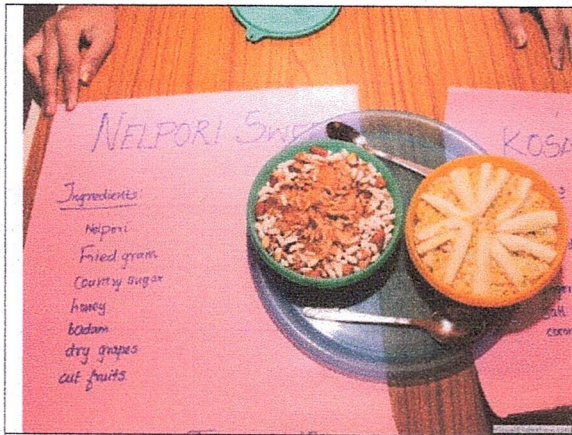 NELPORI SWE
Ingredients:
Nelpori
Fried gram
Country sugar
honey
badam
dry grapes
cut fruits
KOSA